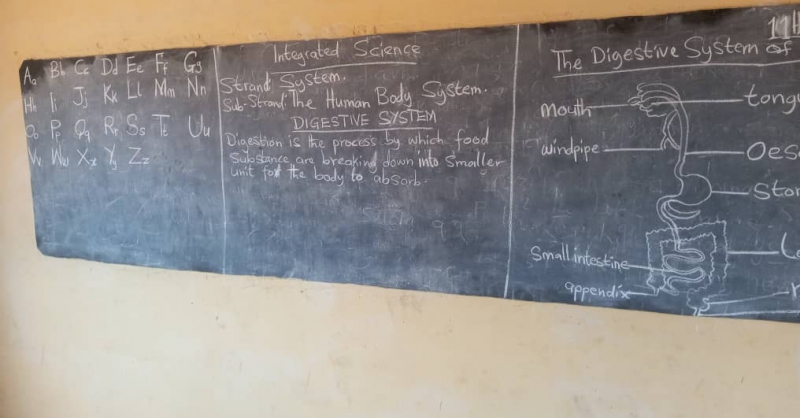 Aa Bb Cc Dd Ee Ff Gg
Hh Ii Jj Kk Ll Mm Nn
Oo Pp Qq Rr Ss Tt Uu
Vv Ww Xx Yy Zz
Integrated Science
Strand System.
Sub-Strand: The Human Body System.
DIGESTIVE SYSTEM
Digestion is the process by which food
Substance are breaking down into Smaller
unit for the body to absorb.
11th
The Digestive System of
mouth
tong
windpipe
Oes
Stom
Small intestine
appendix